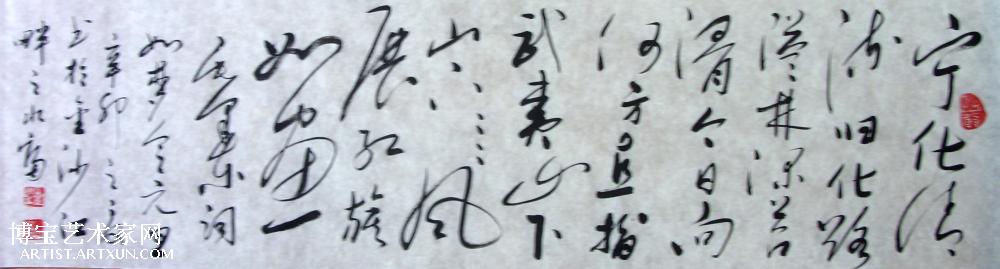 宁化清
流归化路
隘林深苔
滑今日向
何方直指
武夷山下
山下〻〻风
展红旗
如画
毛泽东词
如梦令元旦
辛卯之
书于金沙江
畔之水富
博宝艺术家网
ARTIST.ARTXUN.COM